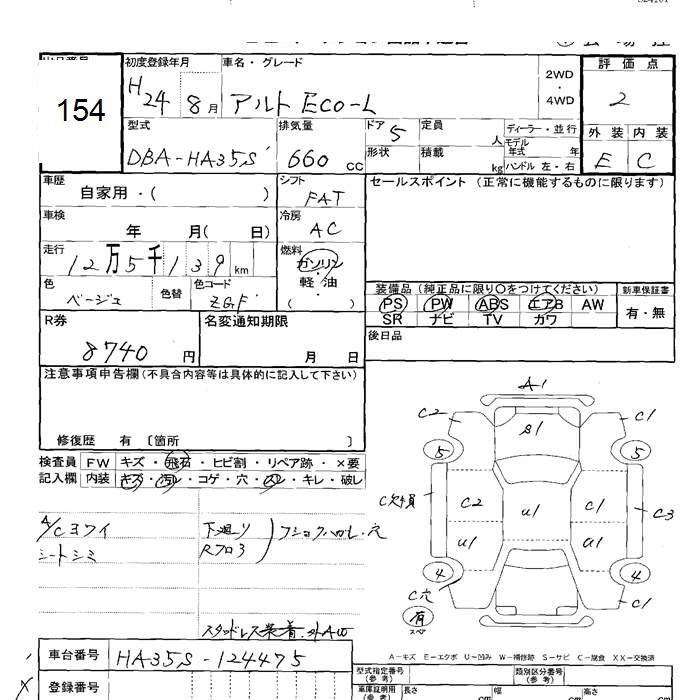 初度登録年月
車名・グレード
評価点
154
H24 8月
アルト Eco-L
2WD
・
4WD
2
型式
排気量
ドア 5
定員
人
ディーラー・並行
外装 内装
モデル年式 年
DBA-HA35S
660 cc
形状
積載
kg
ハンドル 左・右
E C
車歴
シフト
セールスポイント (正常に機能するものに限ります)
自家用・( )
FAT
車検
冷房
年 月( 日)
AC
走行
燃料
12万5千139 km
ガソリン
・
軽・油
・
( )
色
色替
色コード
ベージュ
ZGF
装備品 (純正品に限り○をつけてください)
新車保証書
PS PW ABS エアB AW
SR ナビ TV カワ
有・無
R券
名変通知期限
後日品
8740 円
月 日
注意事項申告欄(不具合内容等は具体的に記入して下さい)
修復歴 有 〔箇所 〕
検査員 FW キズ・飛石・ヒビ割・リペア跡・×要
記入欄 内装 キズ・汚レ・コゲ・穴・スレ・キレ・破レ
A/Cヨワイ
シートシミ
下廻り
Rフロア
A1
C2 S1 C1
5 5
C欠損 C2 U1 C1 C3
U1 A1
4 4
C穴 C1
有
スペア
スタッドレス装着・外AW
車台番号 HA35S-124475
A-キズ E-エクボ U-凹み W-補修跡 S-サビ C-腐食 XX-交換済
登録番号
型式指定番号(参考)
類別区分番号(参考)
車庫証明用(参考)
長さ cm
幅 cm
高さ cm